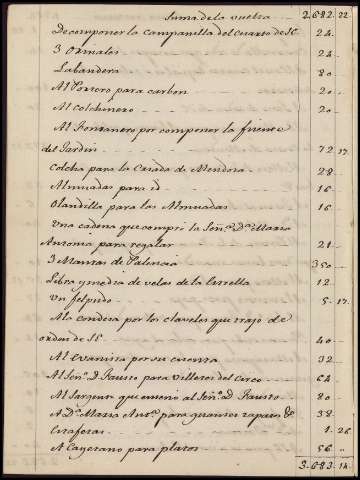 Suma de la vuelta 2.682. 22.
De componer la campanilla del Cuarto de SE 24.
3 Orinales 24.
Labandera 80.
Al Portero para carbon 20.
Al Colchonero 20.
Al Fontanero por componer la fuente
del Jardin 72. 17.
Colcha para la Criada de Mendoza 28.
Almuadas para id 16.
Olandilla para las Almuadas 16.
Una cadena que compré la Señ.ª D.ª Maria
Antonia para regalar 21.
3 Mantas de Palencia 350.
Libra y media de velas de la Estrella 12.
Un felpudo 5. 17.
A la condesa por los claveles que trajo de
orden de SE 40.
Al Evanista por su cuenta 32.
Al Señ.r D. Fausto para villetes del Circo 64.
Al Sargento que enseña al Señ.r D. Fausto 80.
A D.ª Maria Ant.ª para guantes zapatos &
Cerezas 1. 26.
38.
A Cayetano para platos 56.
3.683. 14.